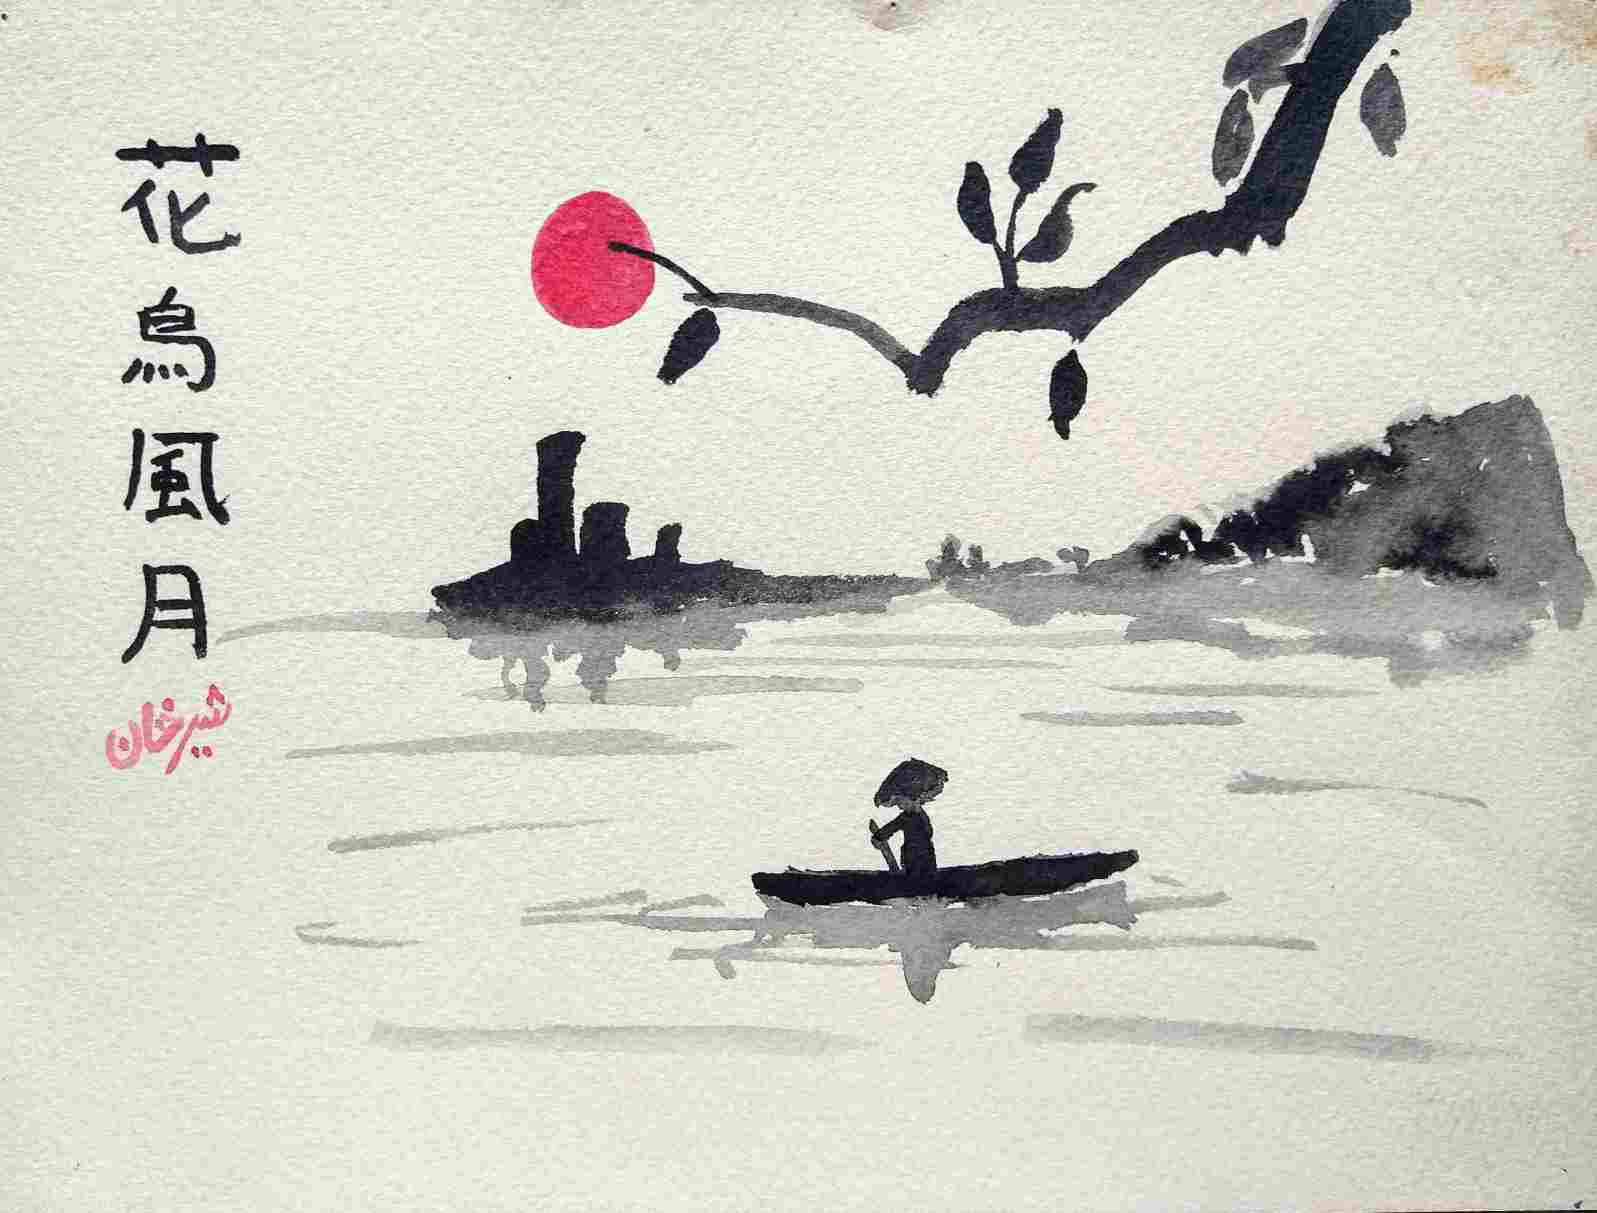 花鳥風月
شیرخان